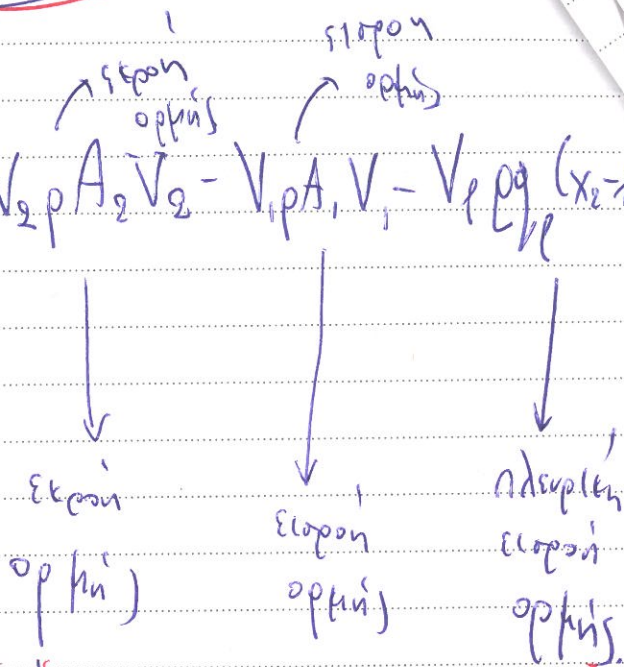 εκροή ορμής
εισροη ορμής
V₂ρA₂V₂ - V₁ρA₁V₁ - Vℓρqℓ(x₂-
εκροή ορμής
εισροή ορμής
πλευρική εισροή ορμής.